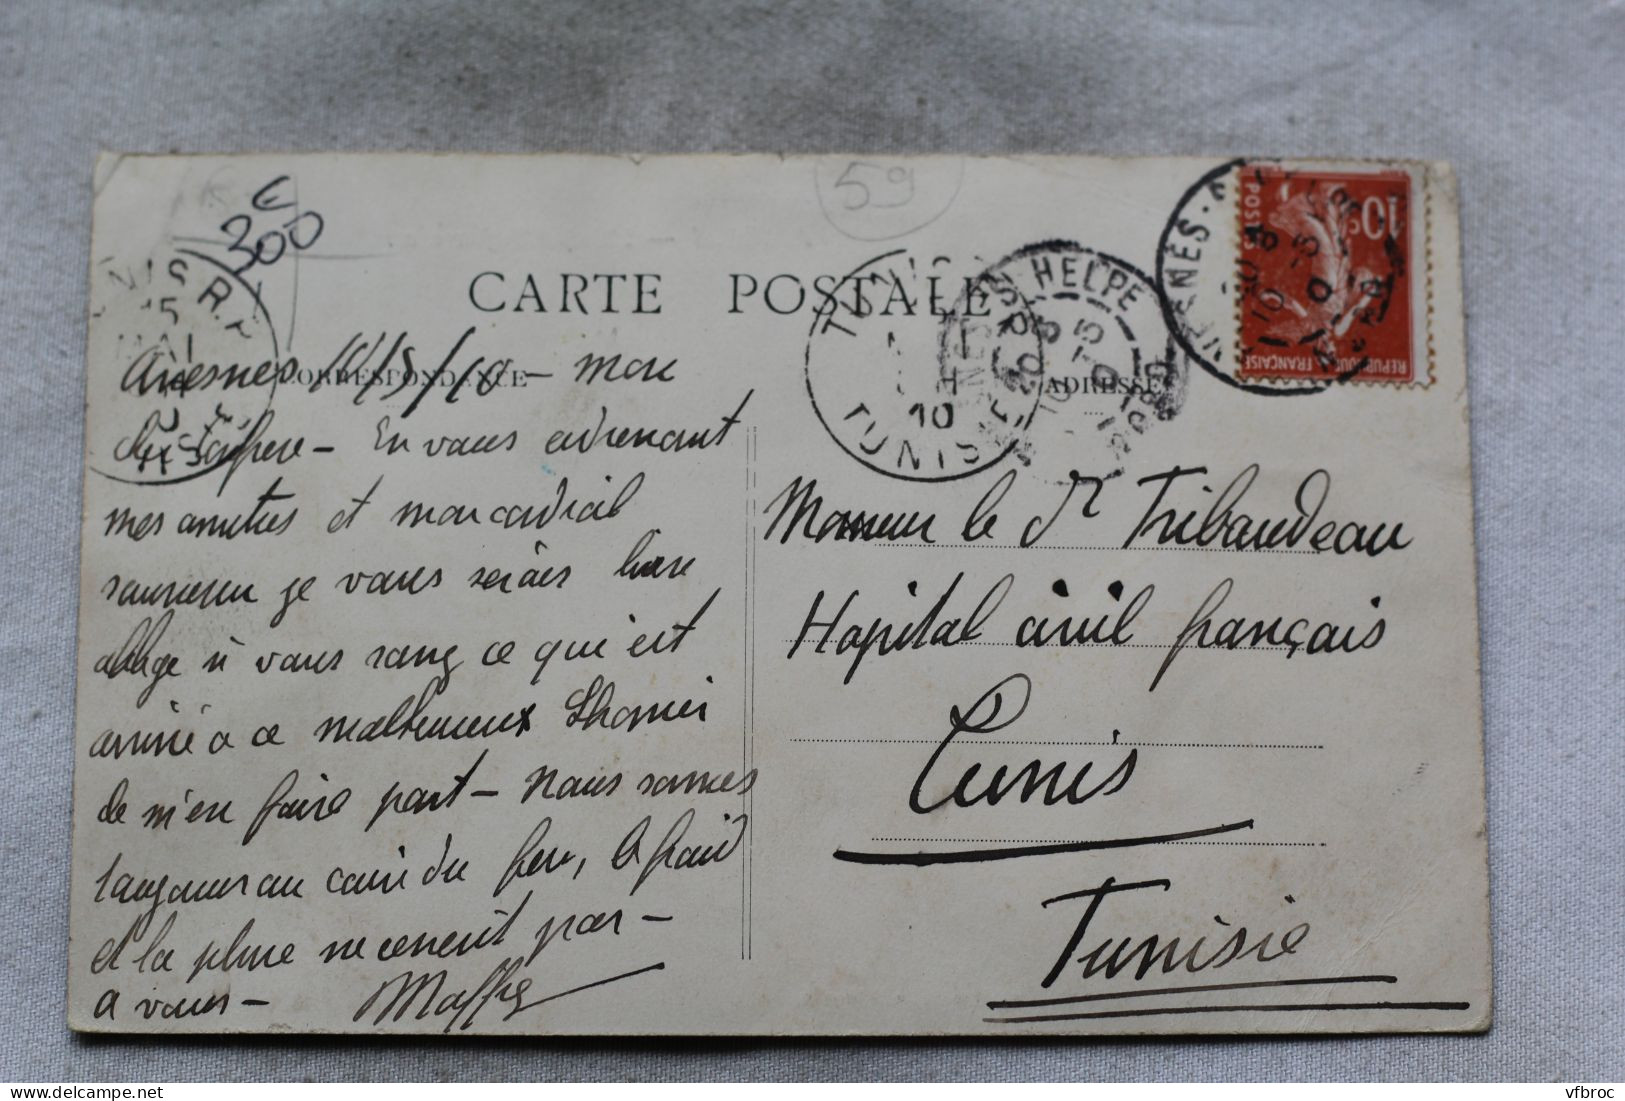 59
3€00
CARTE POSTALE
CORRESPONDANCE
ADRESSE
10c
POSTES
REPUBLIQUE FRANÇAISE
TUNIS R.P.
15
MAI
TUNIS
10
TUNISIE
HELPE
Avesnes 11/5/10 - mon
cher - En vous adressant
mes amitiés et mon cordial
souvenir je vous serais bien
obligé si vous savez ce qui est
arrivé a ce malheureux
de m'en faire part - Nous sommes
toujours au coin du feu, le froid
et la pluie ne cessent pas -
a vous -
Monsieur le Dr Tribaudeau
Hopital civil français
Tunis
Tunisie
vfbroc